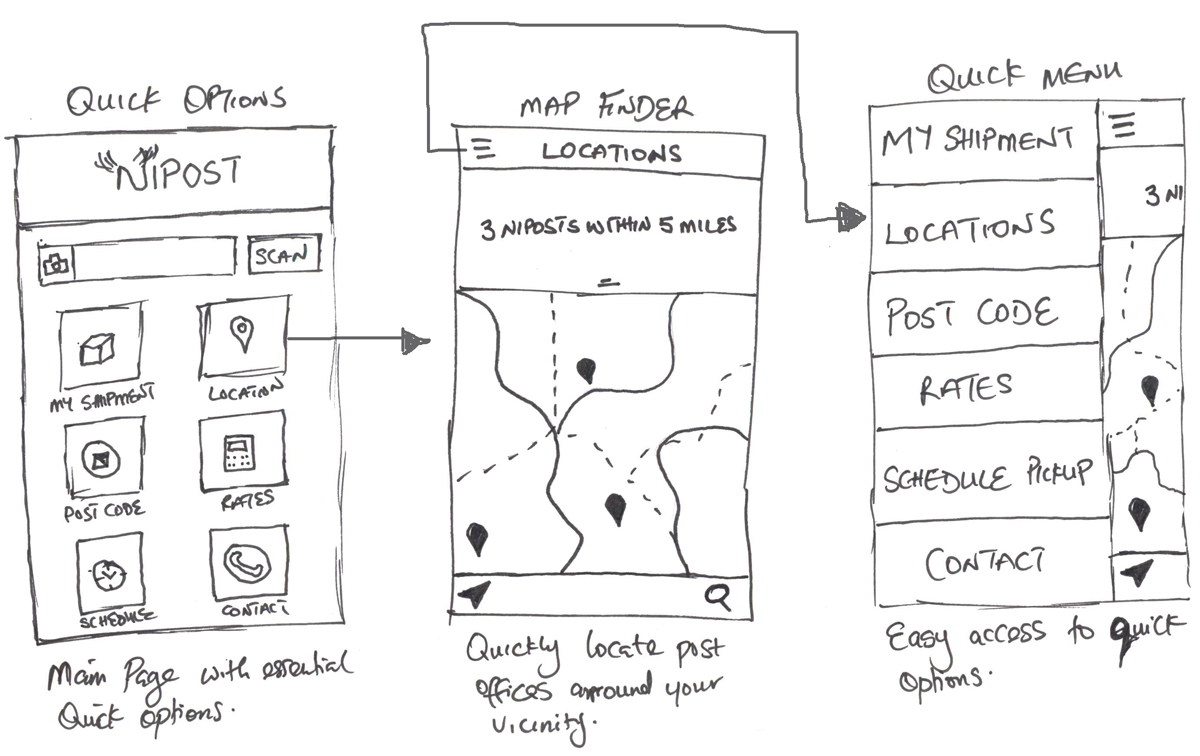 QUICK OPTIONS
NIPOST
SCAN
MY SHIPMENT
LOCATION
POST CODE
RATES
SCHEDULE
CONTACT
Main Page with essential
Quick options.
MAP FINDER
LOCATIONS
3 NIPOSTS WITHIN 5 MILES
Quickly locate post
offices arround your
vicinity.
QUICK MENU
MY SHIPMENT
LOCATIONS
POST CODE
RATES
SCHEDULE PICKUP
CONTACT
3 NI
Easy access to quick
options.